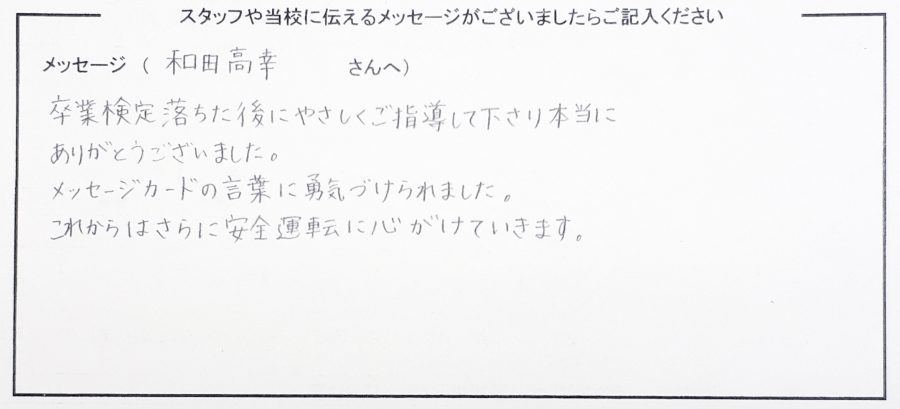 スタッフや当校に伝えるメッセージがございましたらご記入ください
メッセージ（ 和田高幸 さんへ）
卒業検定落ちた後にやさしくご指導して下さり本当に
ありがとうございました。
メッセージカードの言葉に勇気づけられました。
これからはさらに安全運転に心がけていきます。